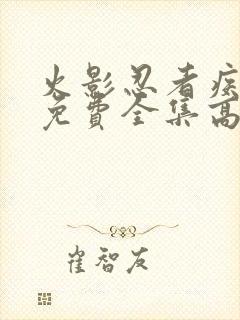 火影忍者疾
免費全集高
崔智友